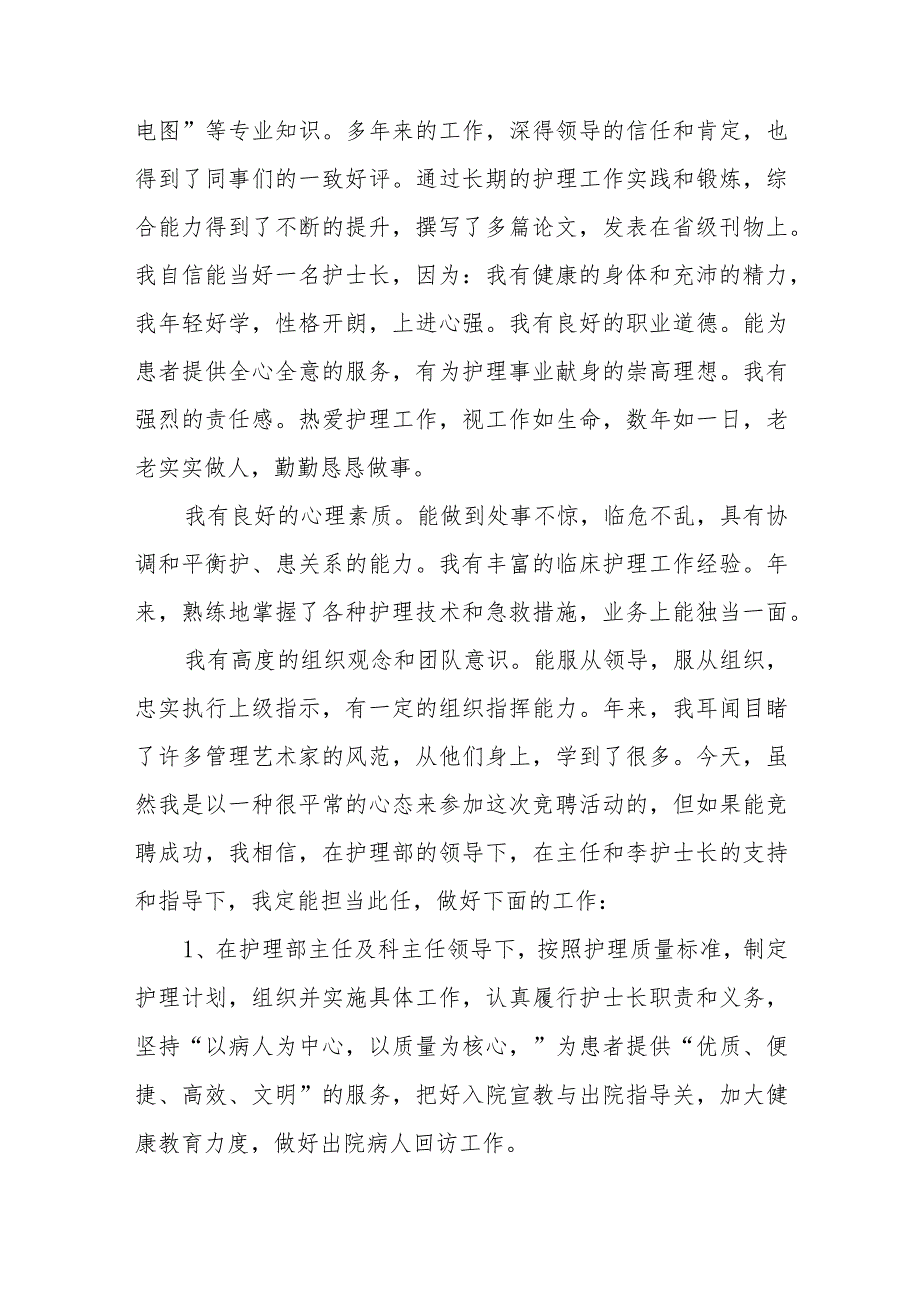 电图”等专业知识。多年来的工作，深得领导的信任和肯定，也
得到了同事们的一致好评。通过长期的护理工作实践和锻炼，综
合能力得到了不断的提升，撰写了多篇论文，发表在省级刊物上。
我自信能当好一名护士长，因为：我有健康的身体和充沛的精力，
我年轻好学，性格开朗，上进心强。我有良好的职业道德。能为
患者提供全心全意的服务，有为护理事业献身的崇高理想。我有
强烈的责任感。热爱护理工作，视工作如生命，数年如一日，老
老实实做人，勤勤恳恳做事。
我有良好的心理素质。能做到处事不惊，临危不乱，具有协
调和平衡护、患关系的能力。我有丰富的临床护理工作经验。年
来，熟练地掌握了各种护理技术和急救措施，业务上能独当一面。
我有高度的组织观念和团队意识。能服从领导，服从组织，
忠实执行上级指示，有一定的组织指挥能力。年来，我耳闻目睹
了许多管理艺术家的风范，从他们身上，学到了很多。今天，虽
然我是以一种很平常的心态来参加这次竞聘活动的，但如果能竞
聘成功，我相信，在护理部的领导下，在主任和李护士长的支持
和指导下，我定能担当此任，做好下面的工作：
1、在护理部主任及科主任领导下，按照护理质量标准，制定
护理计划，组织并实施具体工作，认真履行护士长职责和义务，
坚持“以病人为中心，以质量为核心，”为患者提供“优质、便
捷、高效、文明”的服务，把好入院宣教与出院指导关，加大健
康教育力度，做好出院病人回访工作。